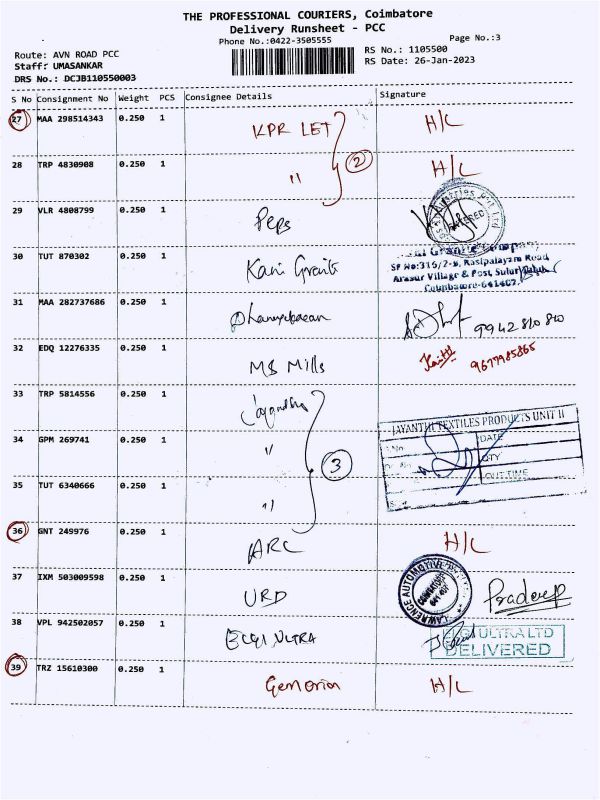 THE PROFESSIONAL COURIERS, Coimbatore
Delivery Runsheet - PCC
Phone No.:0422-3505555
Page No.:3
Route: AVN ROAD PCC
RS No.: 1105500
Staff: UMASANKAR
RS Date: 26-Jan-2023
DRS No.: DCJB110550003
S No Consignment No Weight PCS Consignee Details Signature
27 MAA 298514343 0.250 1 KPR LET H/L
28 TRP 4830908 0.250 1 " H/L
2
29 VLR 4808799 0.250 1 Peps
30 TUT 870302 0.250 1 Kani Granite
Kani Granite Company
SF No:316/2-B, Rasipalayam Road
Arasur Village & Post, Sulur Taluk
Coimbatore-641407.
31 MAA 282737686 0.250 1 9942810810
32 EDQ 12276335 0.250 1 MS Mills 9677985865
33 TRP 5814556 0.250 1 Jayanthi
JAYANTHI TEXTILES PRODUCTS UNIT II
DATE
34 GPM 269741 0.250 1 "
QTY
3
OUT TIME
35 TUT 6340666 0.250 1 "
36 GNT 249976 0.250 1 ARC H/L
37 IXM 503009598 0.250 1 URD LAWRENCE AUTOMOTIVE Pradeep
38 VPL 942502057 0.250 1 ELGI ULTRA
ELGI ULTRA LTD
DELIVERED
39 TRZ 15610300 0.250 1 H/L